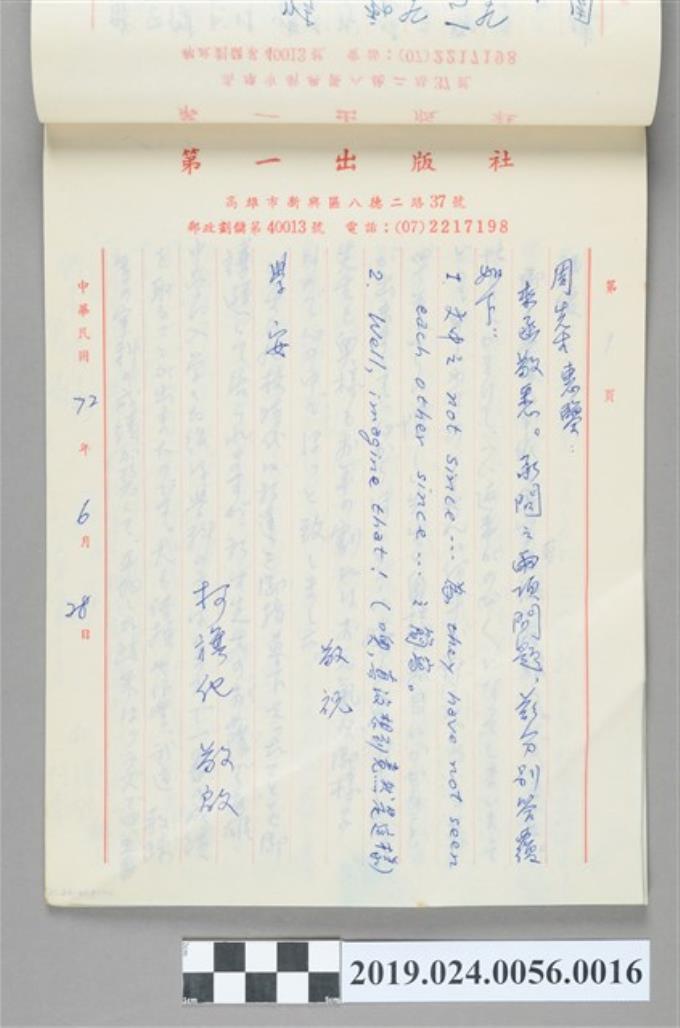 第一出版社
高雄市新興區八德二路37號
郵政劃儲第40013號 電話：(07)2217198
第 1 頁
周先生惠鑒：
來函敬悉。承問之兩項問題，茲分別答覆
如下：
1. 文中之 not since... 為 they have not seen
each other since... 之簡寫。
2. Well, imagine that! (噢，真沒想到竟然是這樣)
敬祝
學安
柯旗化 敬啟
中華民國 72 年 6 月 28 日
2019.024.0056.0016